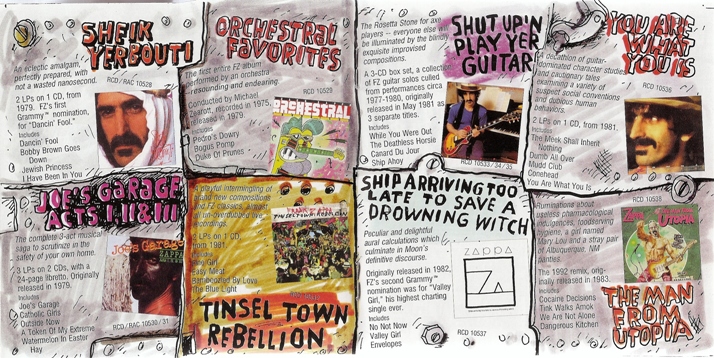 SHEIK
YERBOUTI
An eclectic amalgam,
perfectly prepared, with
not a wasted nanosecond.
RCD / RAC 10528
2 LPs on 1 CD, from
1979. FZ's first
Grammy™ nomination,
for "Dancin' Fool."
Includes
Dancin' Fool
Bobby Brown Goes
Down
Jewish Princess
I Have Been In You
ORCHESTRAL
FAVORITES
The first entire FZ album
performed by an orchestra
resounding and endearing
RCD 10529
Conducted by Michael
Zearott, recorded in 1975,
released in 1979.
Includes
Pedro's Dowry
Bogus Pomp
Duke Of Prunes
ORCHESTRAL
The Rosetta Stone for axe
players -- everyone else will
be illuminated by the blindly
exquisite improvised
compositions.
SHUT UP 'N
PLAY YER
GUITAR
A 3-CD box set, a collection
of FZ guitar solos culled
from performances circa
1977-1980, originally
released in May 1981 as
3 separate titles.
Includes
While You Were Out
The Deathless Horsie
Canard Du Jour
Ship Ahoy
RCD 10533 / 34 / 35
YOU ARE
WHAT
YOU IS
A decathlon of guitar-
dominated character studies
and cautionary tales
examining a variety of
suspect social conventions
and dubious human
behaviors.
RCD 10536
2 LPs on 1 CD, from 1981.
Includes
The Meek Shall Inherit
Nothing
Dumb All Over
Mudd Club
Conehead
You Are What You Is
JOE'S GARAGE
ACTS I, II & III
The complete 3-act musical
saga to scrutinize in the
safety of your own home.
3 LPs on 2 CDs, with a
24-page libretto. Originally
released in 1979.
Includes
Joe's Garage
Catholic Girls
Outside Now
A Token Of My Extreme
Watermelon In Easter
Hay
Joe's Garage
ZAPPA
RCD / RAC 10530 / 31
A playful intermingling of
brand new compositions
and FZ classics, almost
all un-overdubbed live
recordings.
2 LPs on 1 CD,
from 1981.
Includes
Fine Girl
Easy Meat
Bamboozled By Love
The Blue Light
TINSELTOWN REBELLION
TINSEL TOWN
REBELLION
SHIP ARRIVING TOO
LATE TO SAVE A
DROWNING WITCH
Peculiar and delightful
aural calculations which
culminate in Moon's
definitive discourse.
Originally released in 1982.
FZ's second Grammy™
nomination was for "Valley
Girl," his highest charting
single ever.
Includes
No Not Now
Valley Girl
Envelopes
ZAPPA
RCD 10537
Ruminations about
useless pharmacological
indulgences, toadserving
hygiene, a girl named
Mary Lou and a stray pair
of Albuquerque, NM
panties
The 1992 remix, orig-
inally released in 1983.
Includes
Cocaine Decisions
Tink Walks Amok
We Are Not Alone
Dangerous Kitchen
ZAPPA
UTOPIA
RCD 10538
THE MAN
FROM
UTOPIA